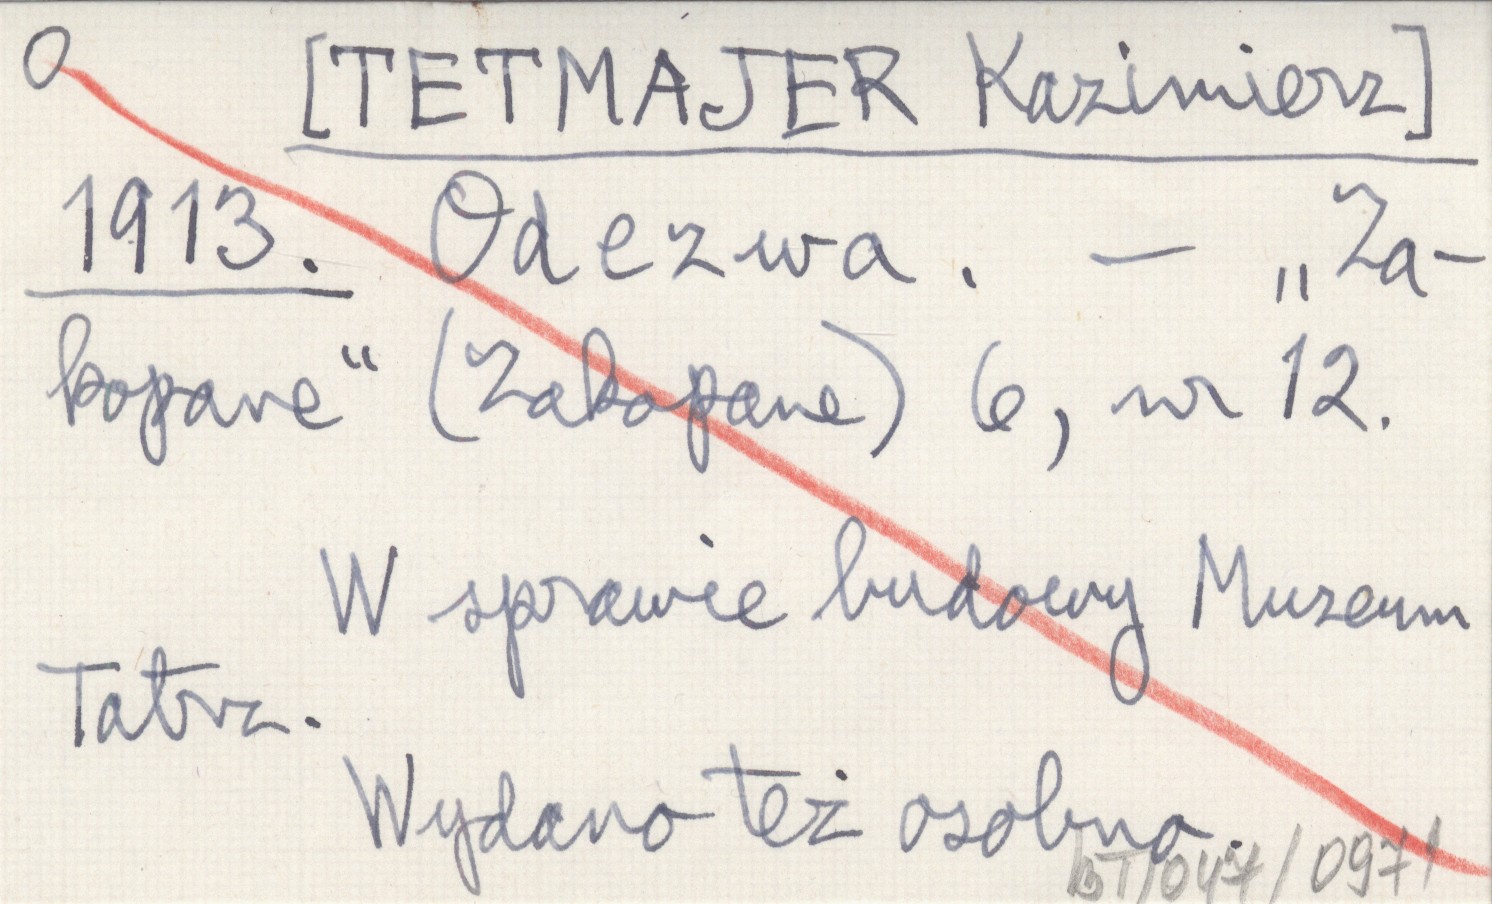 O [TETMAJER Kazimierz]
1913. Odezwa. — „Za-
kopane“ (Zakopane) 6, nr 12.
W sprawie budowy Muzeum
Tatrz.
Wydano też osobno.
BT/047/0971